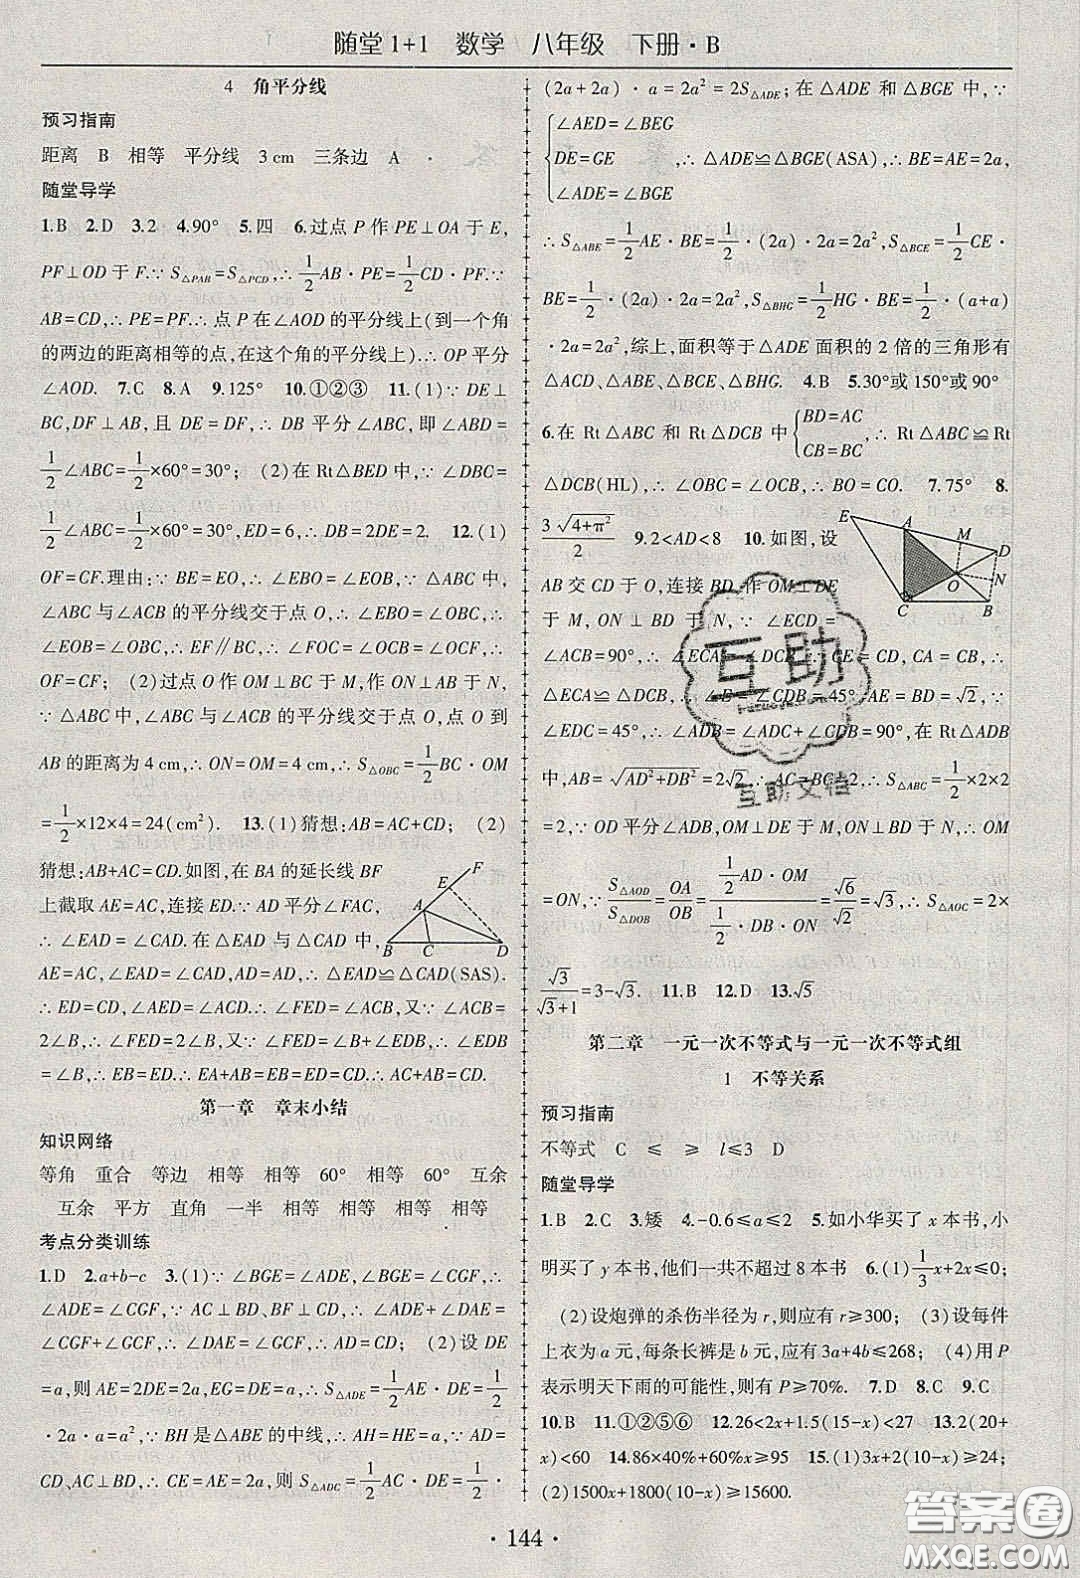 随堂1+1 数学 八年级 下册·B
4 角平分线
预习指南
距离 B 相等 平分线 3 cm 三条边 A
随堂导学
1.B 2.D 3.2 4.90° 5.四 6.过点P作PE⊥OA于E,
PF⊥OD于F.∵S△PAB=S△PCD,∴1/2AB·PE=1/2CD·PF.∵
AB=CD,∴PE=PF.∴点P在∠AOD的平分线上(到一个角
的两边的距离相等的点,在这个角的平分线上).∴OP平分
∠AOD. 7.C 8.A 9.125° 10.①②③ 11.(1)∵DE⊥
BC,DF⊥AB,且DE=DF,∴DB平分∠ABC,即∠ABD=
1/2∠ABC=1/2×60°=30°; (2)在Rt△BED中,∵∠DBC=
1/2∠ABC=1/2×60°=30°,ED=6,∴DB=2DE=2. 12.(1)
OF=CF.理由:∵BE=EO,∴∠EBO=∠EOB,∵△ABC中,
∠ABC与∠ACB的平分线交于点O,∴∠EBO=∠OBC,∴
∠EOB=∠OBC,∴EF∥BC,∴∠FOC=∠OCB=∠OCF,∴
OF=CF; (2)过点O作OM⊥BC于M,作ON⊥AB于N,
∵△ABC中,∠ABC与∠ACB的平分线交于点O,点O到
AB的距离为4 cm,∴ON=OM=4 cm,∴S△OBC=1/2BC·OM
=1/2×12×4=24(cm²). 13.(1)猜想:AB=AC+CD; (2)
猜想:AB+AC=CD.如图,在BA的延长线BF
上截取AE=AC,连接ED.∵AD平分∠FAC,
∴∠EAD=∠CAD.在△EAD与△CAD中,
AE=AC,∠EAD=∠CAD,AD=AD,∴△EAD≌△CAD(SAS).
∴ED=CD,∠AED=∠ACD.∴∠FED=∠ACB,又∵∠ACB=
2∠B,∴∠FED=2∠B,又∵∠FED=∠B+∠EDB,∴∠EDB
=∠B,∴EB=ED.∴EA+AB=EB=ED=CD.∴AC+AB=CD.
F
E
A
B
C
D
第一章 章末小结
知识网络
等角 重合 等边 相等 相等 60° 相等 60° 互余
互余 平方 直角 一半 相等 相等 相等 相等
考点分类训练
1.D 2.a+b-c 3.(1)∵∠BGE=∠ADE,∠BGE=∠CGF,∴
∠ADE=∠CGF,∵AC⊥BD、BF⊥CD,∴∠ADE+∠DAE=
∠CGF+∠GCF,∴∠DAE=∠GCF,∴AD=CD; (2)设DE
=a,则AE=2DE=2a,EG=DE=a,∴S△ADE=1/2AE·DE=1/2
·2a·a=a²,∵BH是△ABE的中线,∴AH=HE=a,∵AD=
CD、AC⊥BD,∴CE=AE=2a,则S△ADC=1/2AC·DE=1/2·
(2a+2a)·a=2a²=2S△ADE;在△ADE和△BGE中,∵
∠AED=∠BEG
DE=GE ,∴△ADE≌△BGE(ASA),∴BE=AE=2a,
∠ADE=∠BGE
∴S△ABE=1/2AE·BE=1/2·(2a)·2a=2a²,S△BCE=1/2CE·
BE=1/2·(2a)·2a=2a²,S△BHG=1/2HG·BE=1/2·(a+a)
·2a=2a²,综上,面积等于△ADE面积的2倍的三角形有
△ACD、△ABE、△BCE、△BHG. 4.B 5.30°或150°或90°
6.在Rt△ABC和Rt△DCB中{BD=AC CB=BC,∴Rt△ABC≌Rt
△DCB(HL),∴∠OBC=∠OCB,∴BO=CO. 7.75° 8.
3√(4+π²)/2 9.2<AD<8 10.如图,设
AB交CD于O,连接BD,作OM⊥DE
于M,ON⊥BD于N,∵∠ECD=
∠ACB=90°,∴∠ECA=∠DCB,∵CE=CD,CA=CB,∴
△ECA≌△DCB,∴∠E=∠CDB=45°,AE=BD=√2,∵
∠EDC=45°,∴∠ADB=∠ADC+∠CDB=90°,在Rt△ADB
中,AB=√(AD²+DB²)=2√2,∴AC=BC=2,∴S△ABC=1/2×2×2
=2,∵OD平分∠ADB,OM⊥DE于M,ON⊥BD于N,∴OM
=ON,∵S△AOD/S△DOB=OA/OB=(1/2AD·OM)/(1/2·DB·ON)=√6/√2=√3,∴S△AOC=2×
√3/(√3+1)=3-√3. 11.B 12.D 13.√5
E
A
M
D
O
N
C
B
第二章 一元一次不等式与一元一次不等式组
1 不等关系
预习指南
不等式 C ≤ ≥ l≤3 D
随堂导学
1.B 2.C 3.矮 4.-0.6≤a≤2 5.如小华买了x本书,小
明买了y本书,他们一共不超过8本书 6.(1)1/3x+2x≤0;
(2)设炮弹的杀伤半径为r,则应有r≥300; (3)设每件
上衣为a元,每条长裤是b元,应有3a+4b≤268; (4)用P
表示明天下雨的可能性,则有P≥70%. 7.D 8.C 9.C
10.B 11.①②⑤⑥ 12.26<2x+1.5x<27 13.2(20+
x)<60 14.86×40%+60%x≥95 15.(1)3x+2(10-x)≥24;
(2)1500x+1800(10-x)≥15600.
互助
互助文档
·144·
答案圈
MXQE.COM